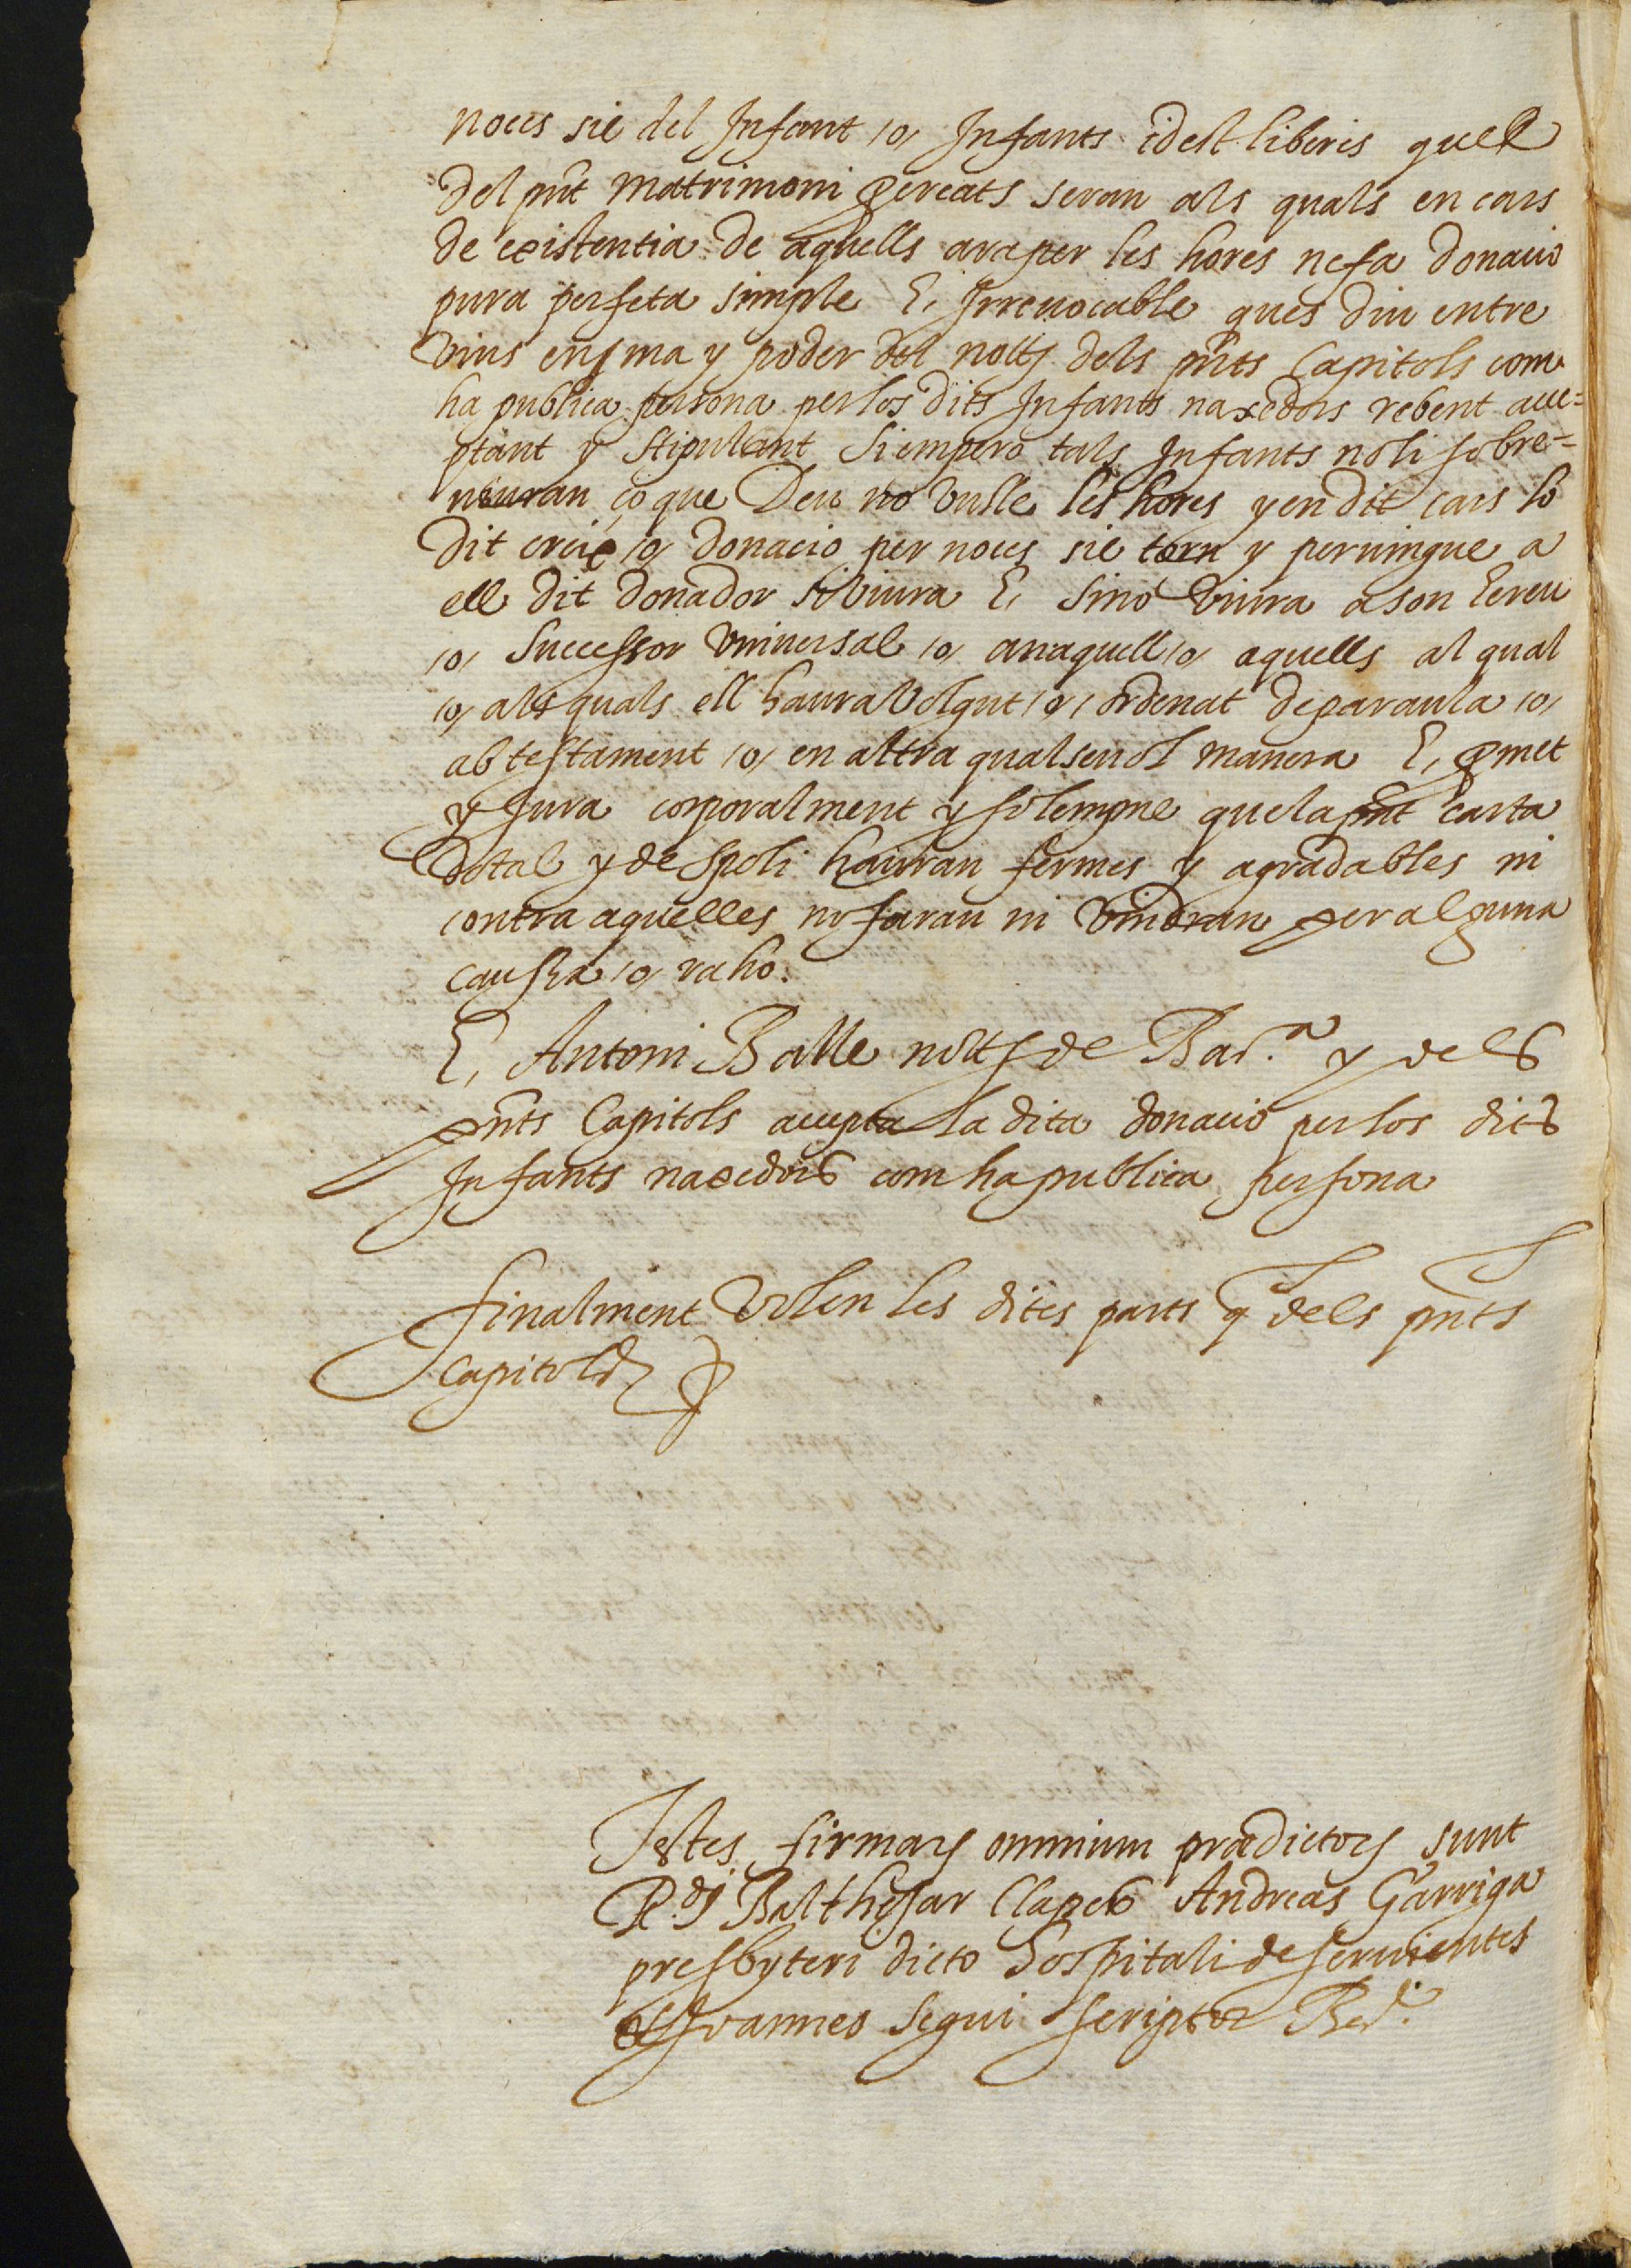 noces sie del Infant /o/ Infants idest liberis quel
del pnt Matrimoni pcreats seran als quals en cars
de existentia de aquells araper les hores nefa donacio
pura perfeta simple E, Irreuocable ques diu entre
vius en ma y poder del notj dels pnts Capitols com
ha publica persona per los dits Infants naxedors rebent acce=
ptant y stipulant Si empero tals Infants noli sobre=
uiuran ço que Deu no vulle les hores y en dit cars lo
dit creix /o/ donacio per noces sie torn y peruingue a
ell dit donador si viura E, sino viura a son hereu
/o/ Successor vniuersal /o/ anaquell /o/ aquells al qual
/o/ als quals ell haura volgut /o/ ordenat de paraula /o/
ab testament /o/ en altra qualseuol manera E, pmet
y Jura corporalment y solempne que la pnt carta
Dotal y de spoli hauran fermes y agradables ni
contra aquelles no faran ni vindran per alguna
caussa /o/ raho.
E, Antoni Batlle notj de Bar.ª y dels
pnts Capitols accepta la dita donacio per los dits
Infants naxedors com ha publica persona
Finalment volen les dites parts q dels pnts
Capitols
Testes firmarj omnium prædictorj sunt
R.dj Balthesar Clapes Andreas Garriga
presbyteri dicto Hospitali deseruientes
et Joannes Segui scriptor